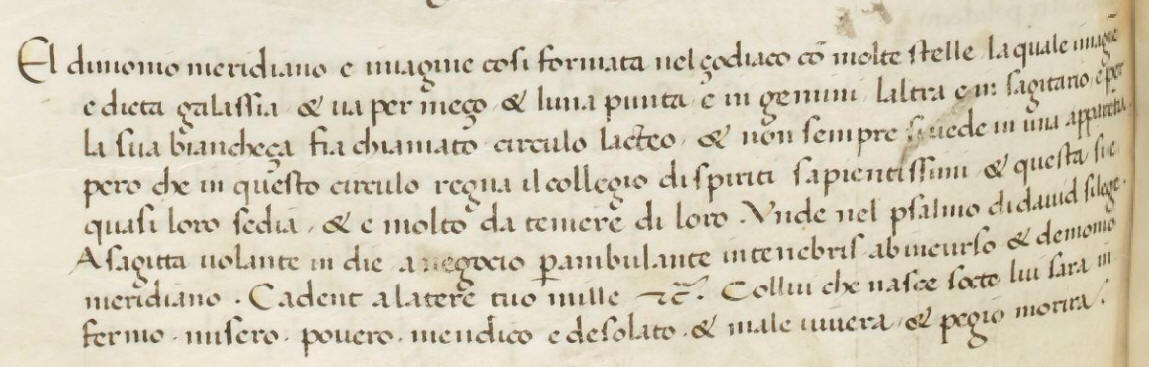 El dimonio meridiano e imagine cosi formata nel çodiaco cō molte stelle. la quale imagīe
e dicta galassia. & ua per meço. & luna punta e in gemini. laltra e in sagitario. e per
la sua biancheça fia chiamato circulo lacteo. & non sempre si uede in una apparētia.
pero che in questo circulo regna il collegio di spiriti sapientissimi & questa sie
quasi loro sedia. & e molto da temere di loro. Vnde nel psalmo di dauid si lege.
A sagitta uolante in die. a negocio ꝑambulante in tenebris ab incurso & demonio
meridiano. Cadent a latere tuo mille ⁊c̄. Collui che nasce socto lui sara in
fermo. misero. pouero. mendico e desolato. & male uiuera. & pegio morira.